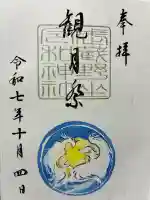 奉拝
観月祭
令和七年十月四日